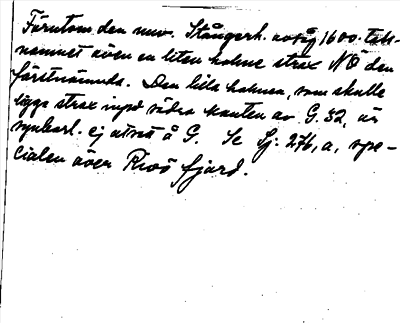 Förutom den nuv. Stångerh. avsåg 1600-tals-
namnet även en liten holme strax NO den
förstnämnda. Den lilla holmen, som skulle
ligga strax inpå södra kanten av G. 32, är
synbarl. ej utsatt å G. Se Sj. 276, a, spe-
cialen över Risö fjärd.